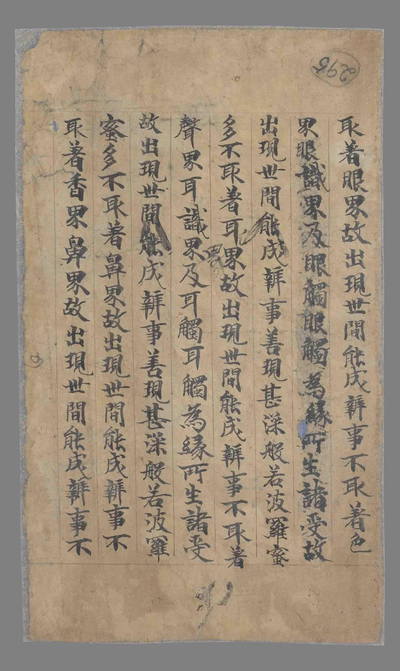 295
取著眼界故出現世間能成辦事不取著色
界眼識界及眼觸眼觸為緣所生諸受故
出現世間能成辦事善現甚深般若波羅蜜
多不取著耳界故出現世間能成辦事不取著
聲界耳識界及耳觸耳觸為緣所生諸受
故出現世間能成辦事善現甚深般若波羅
蜜多不取著鼻界故出現世間能成辦事不
取著香界鼻界故出現世間能成辦事不